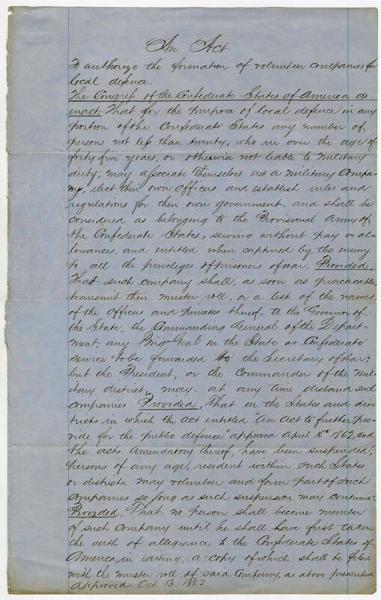 An Act
To authorize the formation of volunteer companies for
local defence.
The Congress of the Confederate States of America do
enact, That for the purpose of local defence in any
portion of the Confederate States any number of
persons not less than twenty, who are over the age of
forty five years, or otherwise not liable to military
duty, may associate themselves as a military Compa-
ny, elect their own officers and establish rules and
regulations for their own government, and shall be
considered as belonging to the Provisional Army of
the Confederate States, serving without pay or al-
lowances, and entitled when captured by the enemy
to all the privileges of prisoners of war. Provided,
That such company shall, as soon as practicable,
transmit their muster roll, or a list of the names
of the officers and privates thereof, to the Governor of
the State, the Commanding General of the Depart-
ment, any Brig Genl in the State or Confederate
service to be forwarded to the Secretary of War;
but the President, or the Commander of the mil-
itary district, may at any time disband such
companies Provided, That in the States and dis-
tricts in which the Act entitled "An Act to further pro-
vide for the public defence" approved April 1862, and
the acts amendatory thereof, have been suspended,
persons of any age, resident within such States
or districts, may volunteer and form part of such
companies so long as such suspension may continue
Provided, That no person shall become member
of such Company until he shall have first taken
the oath of allegiance to the Confederate States of
America, in writing, a copy of which shall be filed
with the muster roll of said Company, as above prescribed
Approved Oct 13 1862